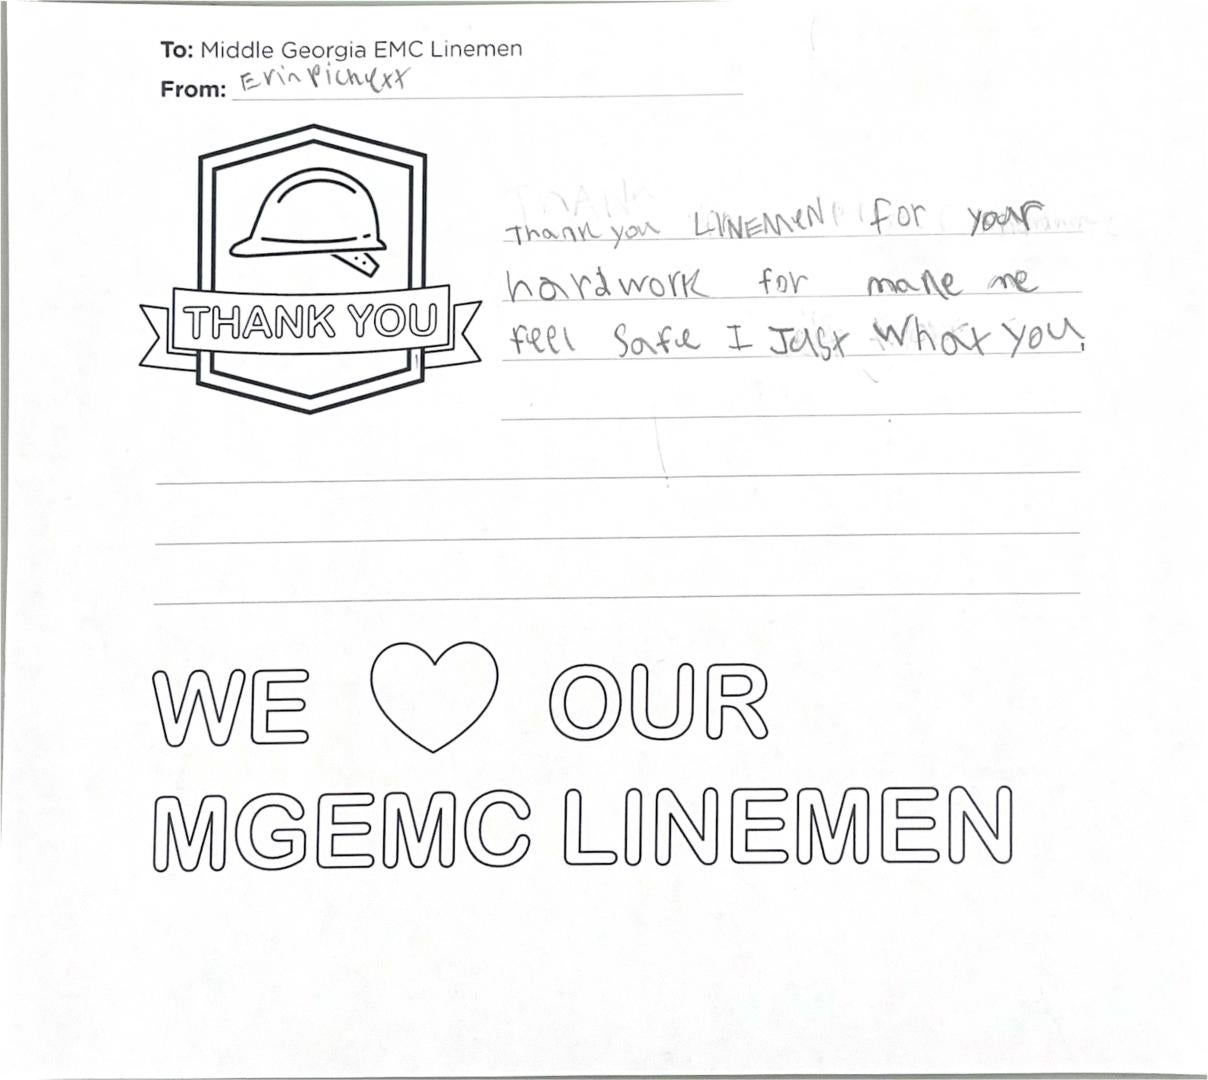 To: Middle Georgia EMC Linemen
From: Erin
THANK YOU
Thank you LINEMEN for your
hardwork for make me
feel Safe I Just What you,
WE OUR
MGEMC LINEMEN